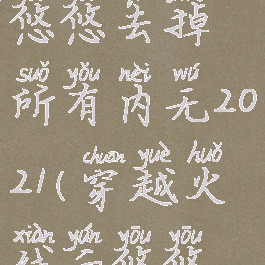 悠悠去掉
suǒ yǒu nèi wú
所有内无20
chuān yuè huǒ
21(穿越火
xiàn yún yōu yōu
线云悠悠